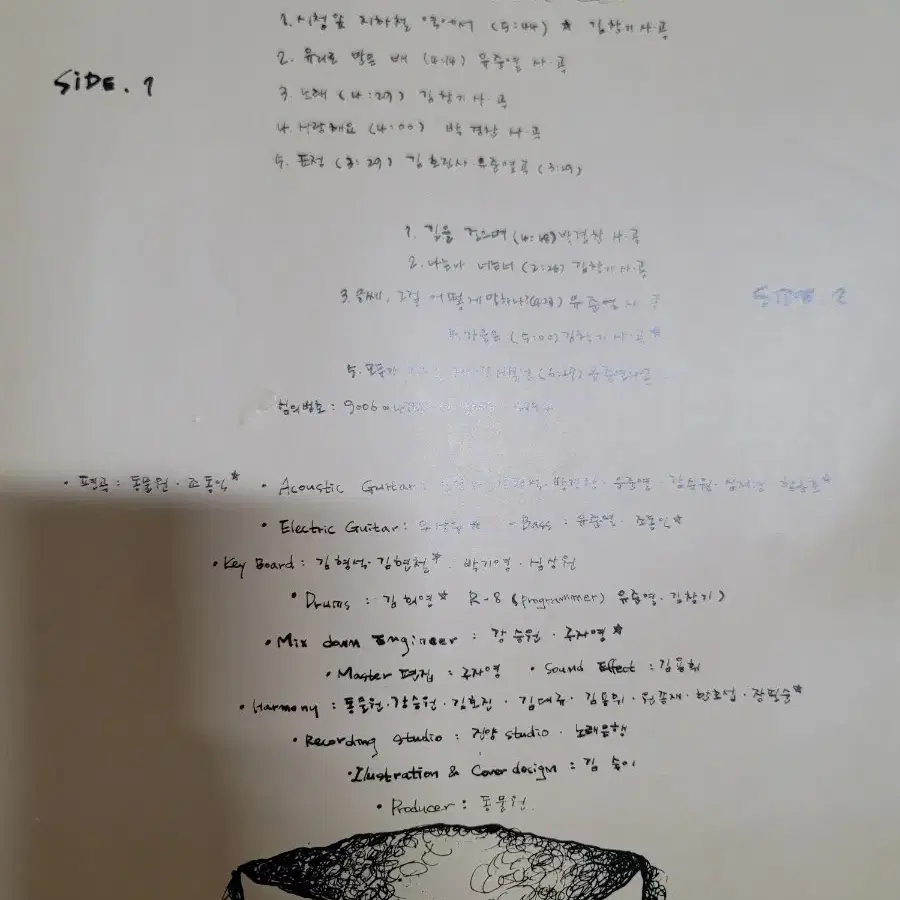 1. 시청앞 지하철 역에서 (5:44) * 김창기 사·곡
2. 유리로 만든 배 (4:14) 유준열 사·곡
SiDE. 1
3. 노래 (4:29) 김창기 사·곡
4. 사랑해요 (4:00) 박경찬 사·곡
5. 표정 (3:29) 김효진사 유준열곡 (3:29)
1. 길을 걸으며 박경찬 사·곡
2. 나는나 너는너 (2:26) 김창기 사·곡
3. 글쎄, 그걸 어떻게 말하나? 유준열 사·곡
SIDE. 2
(5:00) 김창기 사·곡*
5.
심의번호 : 9006
• 편곡 : 동물원 · 조동익* • Acoustic Guitar : 박경찬 · 유준열 · 강승원
• Electric Guitar : - Bass : 유준열 · 조동익*
• Key Board : 김형석 · 김현철* · 박기영 · 심상원
• Drums : 김희연* R-8 (programmer) 유준열 · 김창기)
• Mix down Engineer : 강승원 · 주자영*
• Master 편집 : 주자영 • Sound Effect : 김용휘
• Harmony : 동물원 · 강승원 · 김효진 · 김대규 · 김용휘 · 원종재 · 한효섭 · 장필순*
• Recording studio : 건양 studio · 노래은행
• Ilustration & Cover design : 김솔이
• Producer : 동물원.